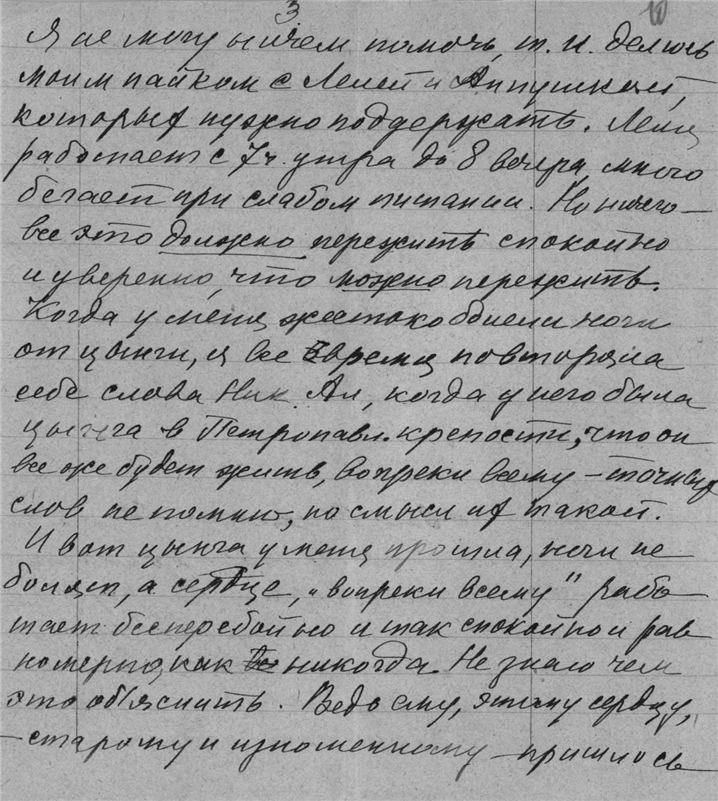 3 10
Я не могу ничем помочь, т. к. делюсь
моим пайком с Лелей и Аннушкой,
которых нужно поддержать. Леля
работает с 7 ч. утра до 8 вечера, много
бегает при слабом питании. Но ничего —
все это должно пережить спокойно
и уверенно, что можно пережить.
Когда у меня жестоко болели ноги
от цынги, я все время повторяла
себе слова Ник. Ал., когда у него была
цынга в Петропавл. крепости, что он
все же будет жить, вопреки всему – точных
слов не помню, но смысл их такой.
И вот цынга у меня прошла, ноги не
болят, а сердце, „вопреки всему" рабо
тает бесперебойно и так спокойно и рав
номерно, как никогда. Не знаю чем
это об'яснить. Ведь ему, этому сердцу,
– старому и изломанному – пришлось